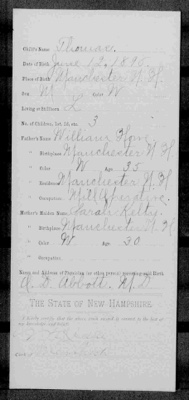 Child's Name Thomas
Date of Birth June 12, 1895
Place of Birth Manchester N. H.
Sex M Color W
Living or Stillborn L
No. of Children, 1st, 2d, etc. 3
Father's Name William
" Birthplace Manchester N H
" Color W Age 35
" Residence Manchester N. H.
" Occupation Mill Operative
Mother's Maiden Name Sarah Kelley
" Birthplace Manchester N H
" Color W Age 30
Name and Address of Physician (or other person) reporting said Birth
A. D. Abbott, M. D.
THE STATE OF NEW HAMPSHIRE.